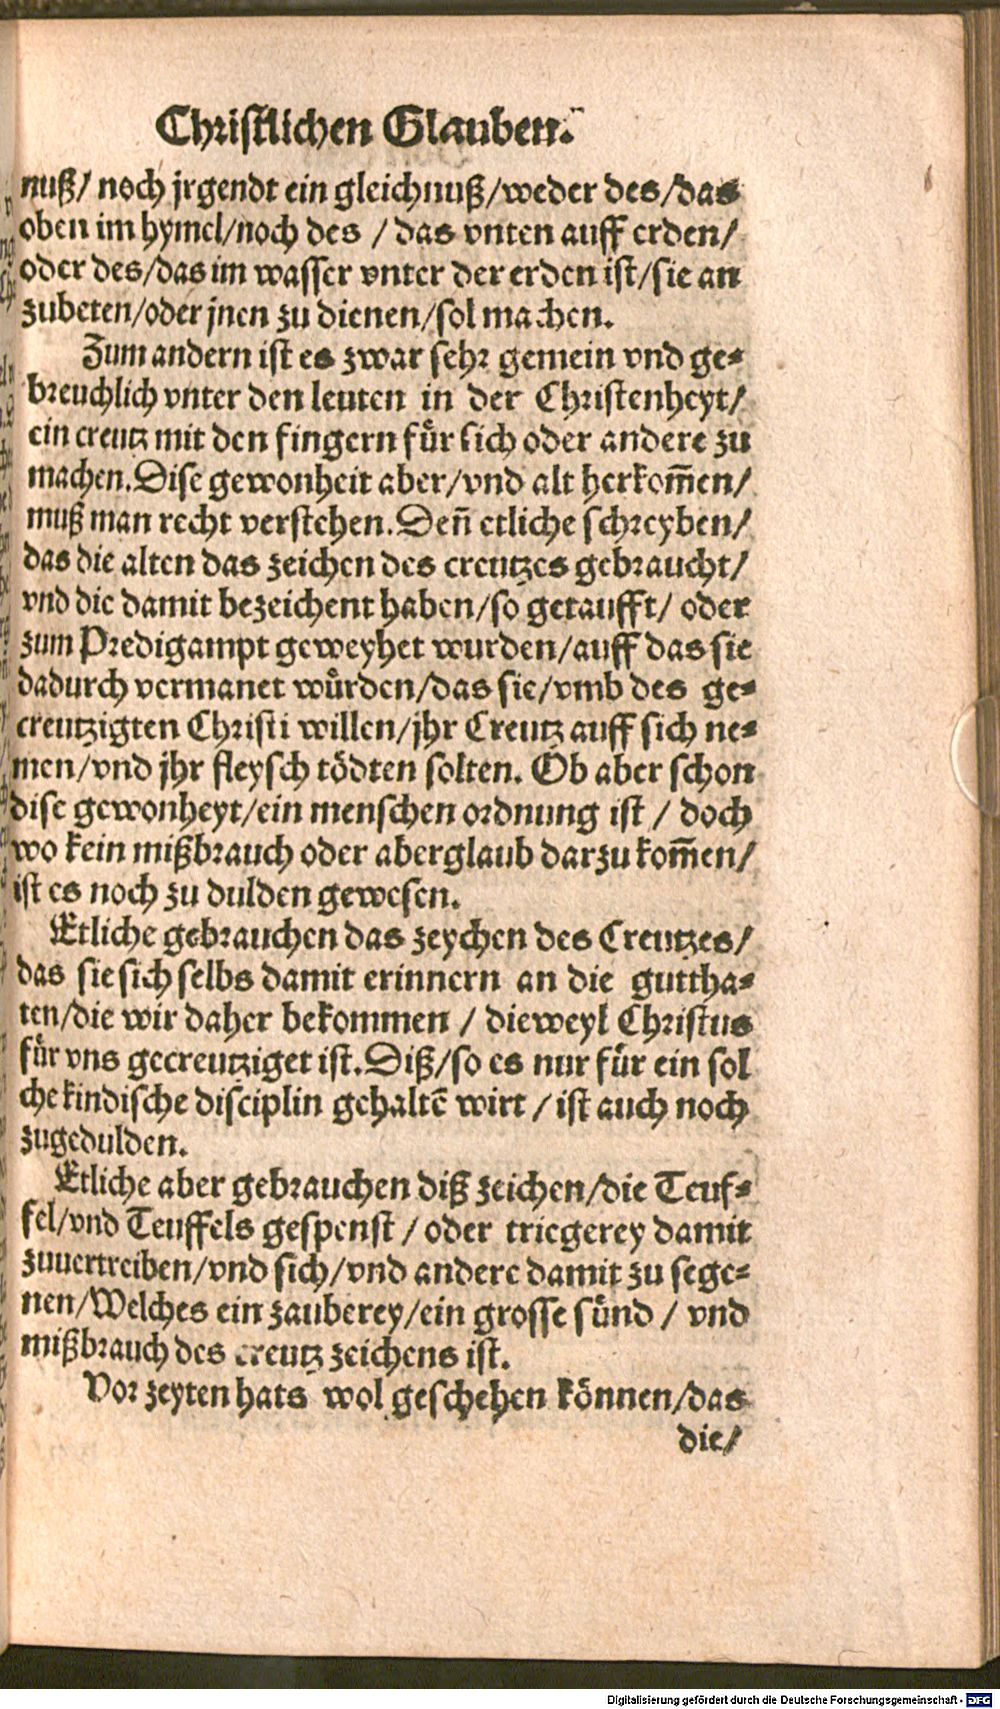 Christlichen Glauben.
nuß/ noch jrgendt ein gleichnuß/weder des/das
oben im hymel/noch des / das vnten auff erden/
oder des/das im wasser vnter der erden ist/sie an
zubeten/oder jnen zu dienen/sol machen.
Zum andern ist es zwar sehr gemein vnd ge-
breuchlich vnter den leuten in der Christenheyt/
ein creutz mit den fingern für sich oder andere zu
machen. Dise gewonheit aber/vnd alt herkom̄en/
muß man recht verstehen. Den̄ etliche schreyben/
das die alten das zeichen des creutzes gebraucht/
vnd die damit bezeichent haben/so getaufft/ oder
zum Predigampt geweyhet wurden/auff das sie
dadurch vermanet würden/das sie/vmb des ge-
creutzigten Christi willen/jhr Creutz auff sich ne-
men/vnd jhr fleysch tödten solten. Ob aber schon
dise gewonheyt/ein menschen ordnung ist / doch
wo kein mißbrauch oder aberglaub darzu kom̄en/
ist es noch zu dulden gewesen.
Etliche gebrauchen das zeychen des Creutzes/
das sie sich selbs damit erinnern an die guttha-
ten/die wir daher bekommen / dieweyl Christus
für vns gecreutziget ist. Diß/so es nur für ein sol
che kindische disciplin gehaltē wirt / ist auch noch
zugedulden.
Etliche aber gebrauchen diß zeichen/die Teuf-
fel/vnd Teuffels gespenst / oder triegerey damit
zuuertreiben/vnd sich/vnd andere damit zu sege-
nen/Welches ein zauberey/ein grosse sünd / vnd
mißbrauch des creutz zeichens ist.
Vor zeyten hats wol geschehen können/das
die/
Digitalisierung gefördert durch die Deutsche Forschungsgemeinschaft - DFG